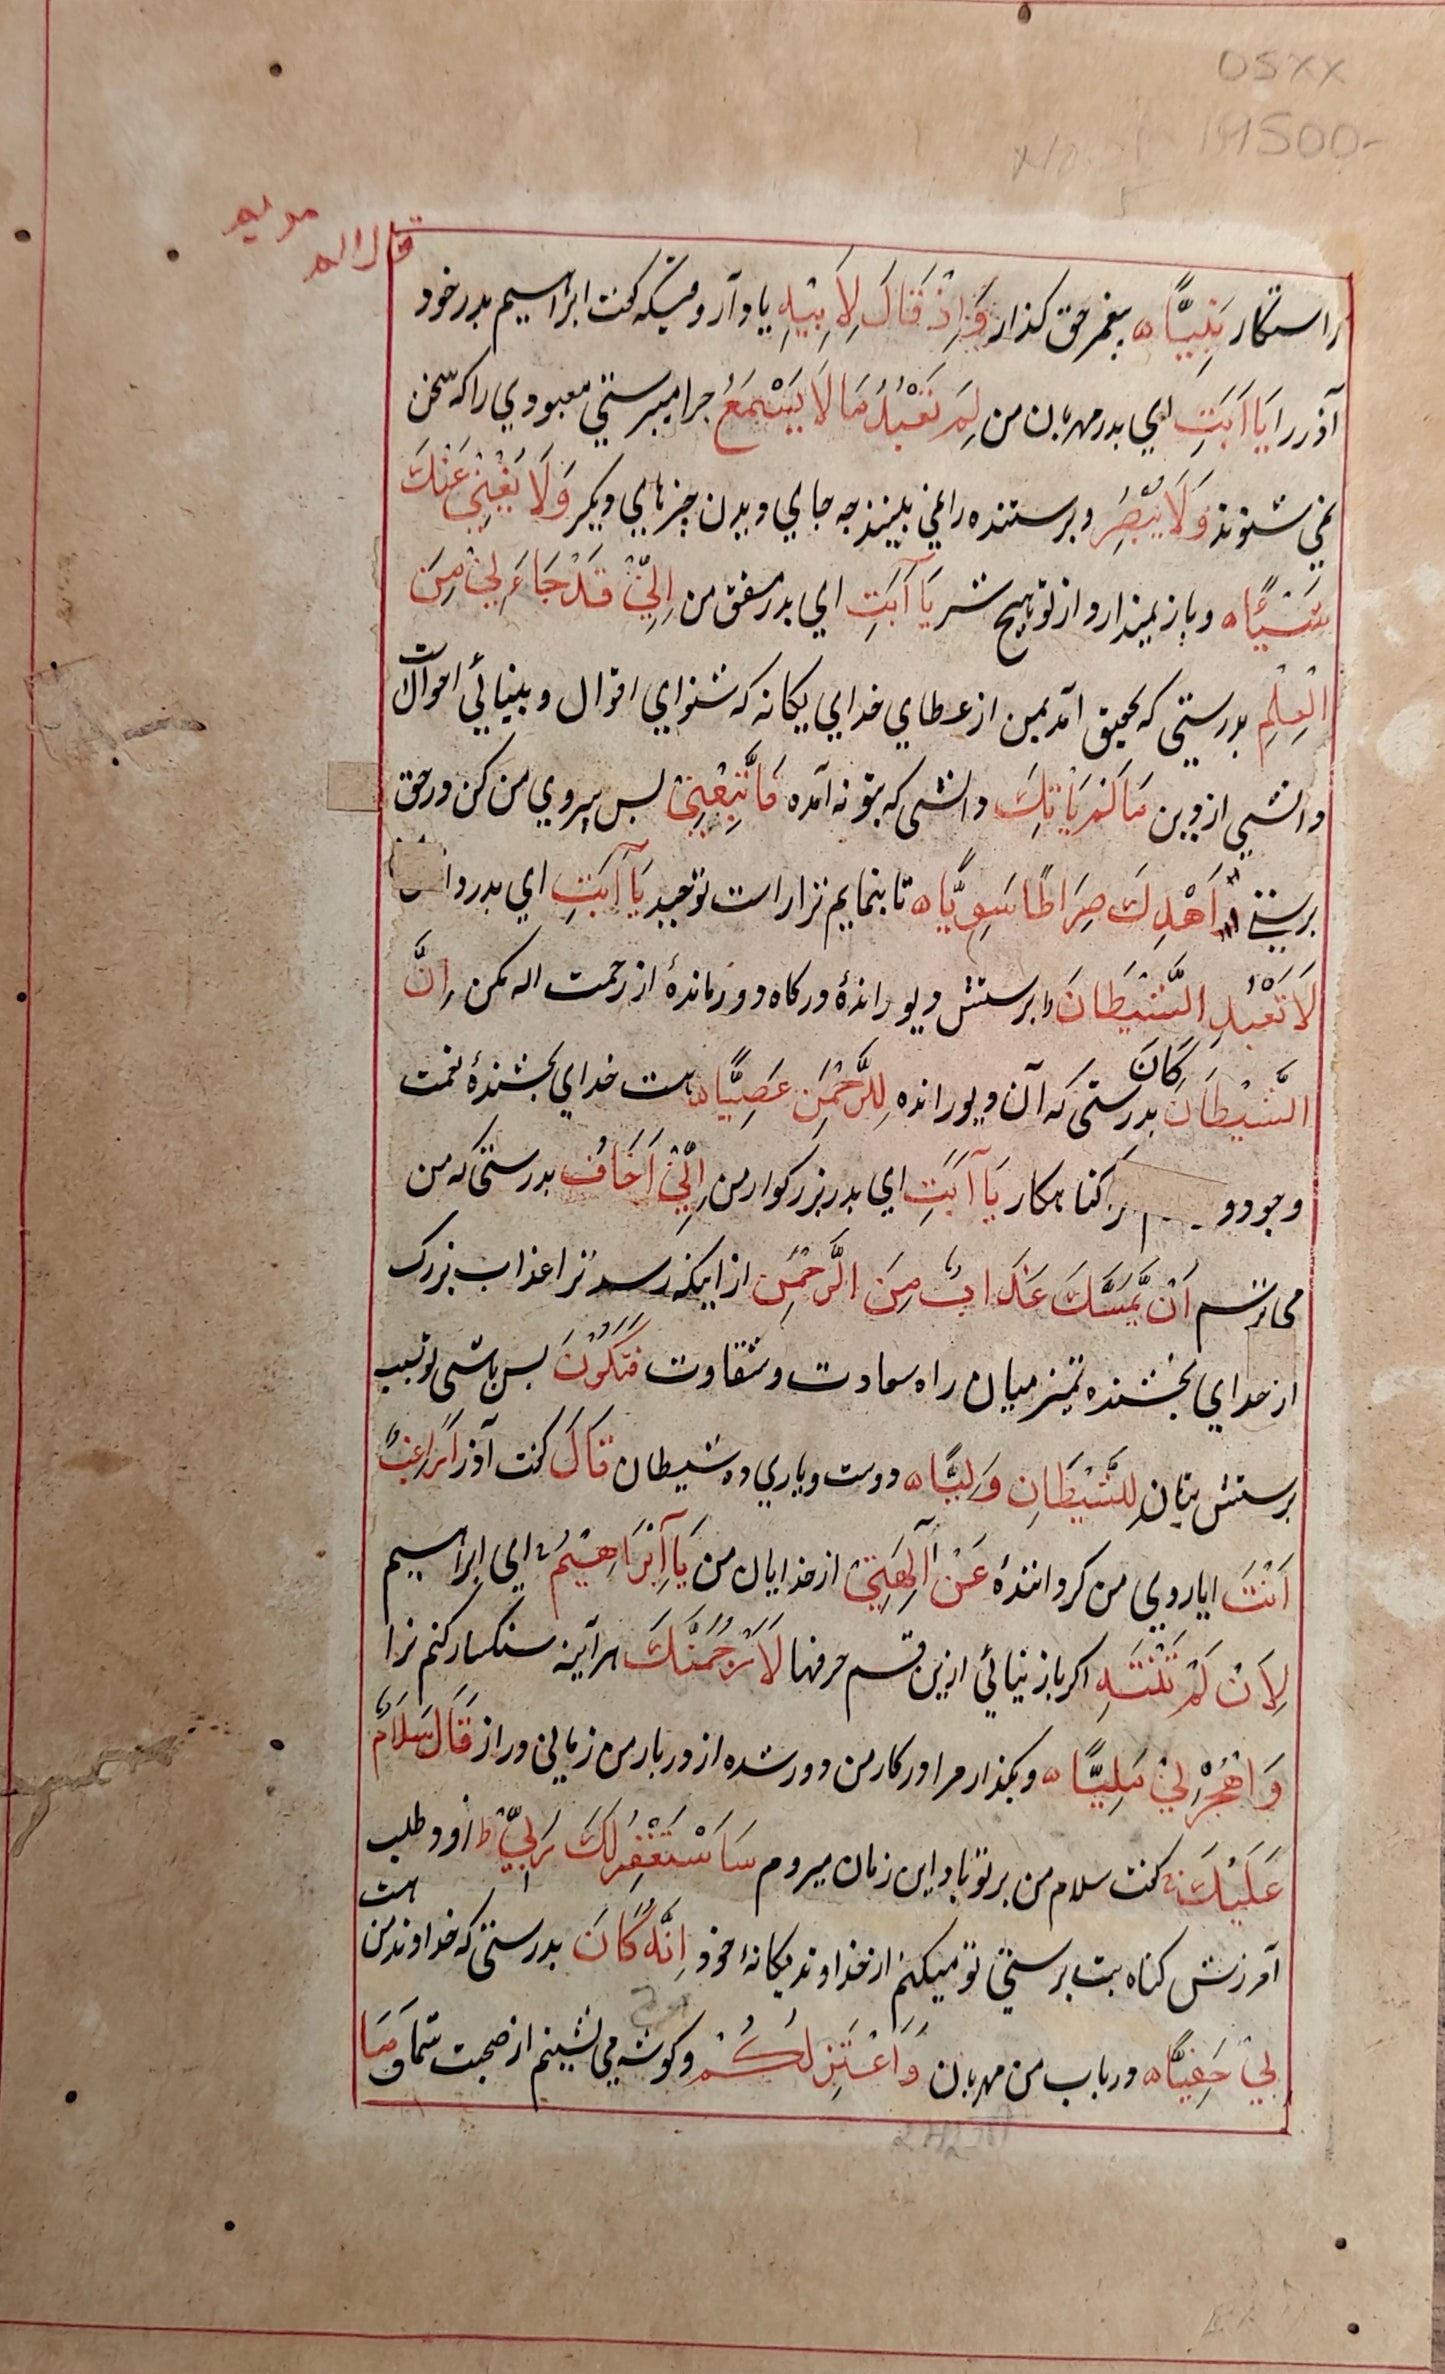 OSXX
19500-
مریم
قال الم
راستکار نَبِيًّا ه پیغمبر حق کذار وَاِذْ قَالَ لِاَبِيْهِ یاد آر وقتیکه کفت ابراهیم بدر خود
آذر را يَا اَبَتِ ای بدر مهربان من لِمَ تَعْبُدُ مَا لَا يَسْمَعُ جرا میبرستی معبودي را که سخن
نمی شنوند وَلَا يُبْصِرُ وبرستنده را نمی بینند جه جاي ویدن چیزهاي ویکر وَلَا يُغْنِيْ عَنْكَ
شَيْئًا ه وباز نمیدارد از تو هیچ شر يَا آبَتِ اي بدر مشفق من اِنِّيْ قَدْ جَاءَ لِيْ مِنَ
الْعِلْمِ بدرستی که تحقیق آمد بمن از عطاي خداي یکانه که شنواي اقوال وبینائي احوال است
دانشی از وین مَا لَمْ يَاْتِكَ دانشی که بتو نه آمده فَاتَّبِعْنِيْ بس پیروي من کن در حق
برستی اَهْدِكَ صِرَاطًا سَوِيًّا ه تا بنمایم ترا راست توحید يَا آبَتِ اي بدر
لَا تَعْبُدِ الشَّيْطَانَ وا برستش ویو راندۀ درکاه ودور ماندۀ از رحمت اله مکن اِنَّ
الشَّيْطَانَ كَانَ بدرستی که آن ویو رانده لِلرَّحْمٰنِ عَصِيًّا ه هست خداي بخشندۀ نعمت
وجود و کناهکار يَا آبَتِ اي بدر بزرکوار من اِنِّيْ اَخَافُ بدرستی که من
می ترسم اَنْ يَّمَسَّكَ عَذَابٌ مِنَ الرَّحْمٰنِ از اینکه رسد ترا عذاب بزرک
از خداي بخشنده تمیز میان راه سعادت وشقاوت فَتَكُوْنَ بس باشی تو بسبب
برستش بتان لِلشَّيْطَانِ وَلِيًّا ه دوست ویاري ده شیطان قَالَ کفت آذر اَرَاغِبٌ
اَنْتَ ایا روي من کروانندۀ عَنْ آلِهَتِيْ از خدایان من يَا اِبْرَاهِيْمُ اي ابراهیم
لِاَنْ لَمْ تَنْتَهِ اکر باز نیائي ازین قسم حرفها لَاَرْجُمَنَّكَ هر آینه سنکسار کنم ترا
وَاهْجُرْنِيْ مَلِيًّا ه وبکذار مرا در کار من دور شده از دربار من زمانی دراز قَالَ سَلَامٌ
عَلَيْكَ کفت سلام من بر تو باد این زمان میروم سَاَسْتَغْفِرُ لَكَ رَبِّيْ ط زود طلب
آمرزش کناه بت برستی تو میکنم از خداوند یکانۀ خود اِنَّهُ كَانَ بدرستی که خداوند من هست
بِيْ حَفِيًّا ه در باب من مهربان وَاَعْتَزِلُكُمْ وکوشه می نشینم از صحبت شما وَمَا